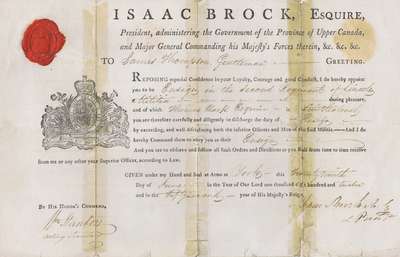 ISAAC BROCK, ESQUIRE,
President, administering the Government of the Province of Upper Canada,
and Major General Commanding his Majesty's Forces therein, &c. &c. &c.
TO James Thompson Gentleman GREETING.
REPOSING especial Confidence in your Loyalty, Courage and good Conduct, I do hereby appoint
you to be Ensign in the Second Regiment of
Militia during pleasure,
and of which Esquire is
you are therefore carefully and diligently to discharge the duty of Ensign
by exercising, and well disciplining both the inferior Officers and Men of the said Militia—and I do
hereby Command them to obey you as their Ensign
And you are to observe and follow all such Orders and Directions as you shall from time to time receive
from me or any other your Superior Officer, according to Law.
GIVEN under my Hand and Seal at Arms at York this
Day of June in the Year of Our Lord one thousand eight hundred and twelve
and in the year of His Majesty's Reign.
BY HIS HONOR'S COMMAND,
Isaac Brock